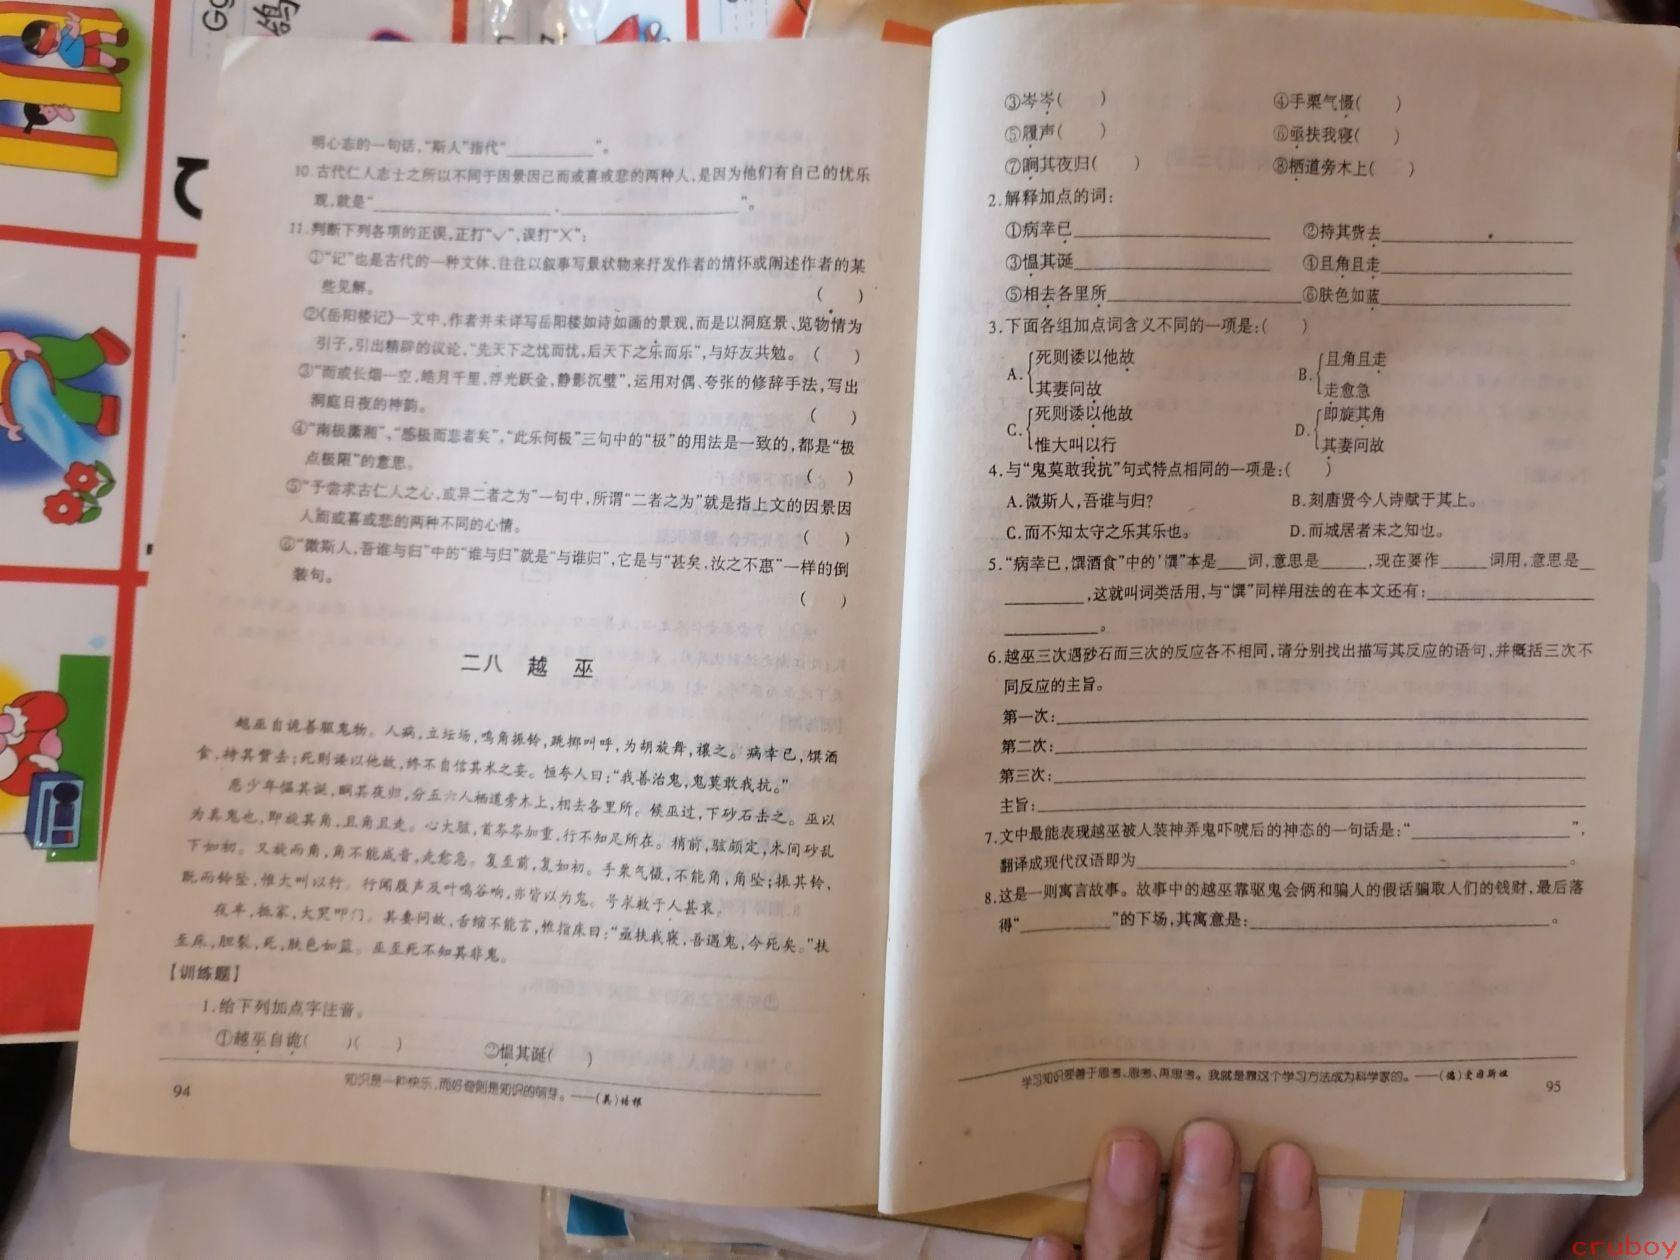 明心志的一句话,“斯人”指代“__________”。
10.古代仁人志士之所以不同于因景因己而或喜或悲的两种人,是因为他们有自己的忧乐
观,就是“__________________,__________________”。
11.判断下列各项的正误,正打“✓”,误打“×”:
①“记”也是古代的一种文体,往往以叙事写景状物来抒发作者的情怀或阐述作者的某
些见解。 ( )
②《岳阳楼记》一文中,作者并未详写岳阳楼如诗如画的景观,而是以洞庭景、览物情为
引子,引出精辟的议论,“先天下之忧而忧,后天下之乐而乐”,与好友共勉。 ( )
③“而或长烟一空,皓月千里,浮光跃金,静影沉璧”,运用对偶、夸张的修辞手法,写出
洞庭日夜的神韵。 ( )
④“南极潇湘”,“感极而悲者矣”,“此乐何极”三句中的“极”的用法是一致的,都是“极
点极限”的意思。 ( )
⑤“予尝求古仁人之心,或异二者之为”一句中,所谓“二者之为”就是指上文的因景因
人而或喜或悲的两种不同的心情。 ( )
⑥“微斯人,吾谁与归”中的“谁与归”就是“与谁归”,它是与“甚矣,汝之不惠”一样的倒
装句。 ( )
二八 越 巫
越巫自诡善驱鬼物。人病,立坛场,鸣角振铃,跳掷叫呼,为胡旋舞,禳之。病幸已,馔酒
食,持其赀去;死则诿以他故,终不自信其术之妄。恒夸人曰:“我善治鬼,鬼莫敢我抗。”
恶少年愠其诞,瞷其夜归,分五六人栖道旁木上,相去各里所。候巫过,下砂石击之。巫以
为真鬼也,即旋其角,且角且走。心大骇,首岑岑加重,行不知足所在。稍前,骇颇定,木间砂乱
下如初。又旋而角,角不能成音,走愈急。复至前,复如初。手栗气慑,不能角,角坠;振其铃,
既而铃坠,惟大叫以行。行闻履声及叶鸣谷响,亦皆以为鬼。号求救于人甚哀。
夜半,抵家,大哭叩门。其妻问故,舌缩不能言,惟指床曰:“亟扶我寝,吾遇鬼,今死矣。”扶
至床,胆裂,死,肤色如蓝。巫至死不知其非鬼。
【训练题】
1.给下列加点字注音。
①越巫自诡( )( ) ②愠其诞( )
知识是一种快乐,而好奇则是知识的萌芽。——(英)培根
94
③岑岑( ) ④手栗气慑( )
⑤履声( ) ⑥亟扶我寝( )
⑦瞷其夜归( ) ⑧栖道旁木上( )
2.解释加点的词:
①病幸已__________ ②持其赀去__________
③愠其诞__________ ④且角且走__________
⑤相去各里所__________ ⑥肤色如蓝__________
3.下面各组加点词含义不同的一项是:( )
A.{死则诿以他故 B.{且角且走
其妻问故 走愈急
C.{死则诿以他故 D.{即旋其角
惟大叫以行 其妻问故
4.与“鬼莫敢我抗”句式特点相同的一项是:( )
A.微斯人,吾谁与归? B.刻唐贤今人诗赋于其上。
C.而不知太守之乐其乐也。 D.而城居者未之知也。
5.“病幸已,馔酒食”中的‘馔”本是___词,意思是_____,现在要作_____词用,意思是_
________,这就叫词类活用,与“馔”同样用法的在本文还有:________________
__________。
6.越巫三次遇砂石而三次的反应各不相同,请分别找出描写其反应的语句,并概括三次不
同反应的主旨。
第一次:____________________
第二次:____________________
第三次:____________________
主旨:____________________
7.文中最能表现越巫被人装神弄鬼吓唬后的神态的一句话是:“________________”,
翻译成现代汉语即为____________________。
8.这是一则寓言故事。故事中的越巫靠驱鬼会俩和骗人的假话骗取人们的钱财,最后落
得“_________”的下场,其寓意是:____________________。
学习知识要善于思考、思考、再思考。我就是靠这个学习方法成为科学家的。——(德)爱因斯坦
95
cruboy